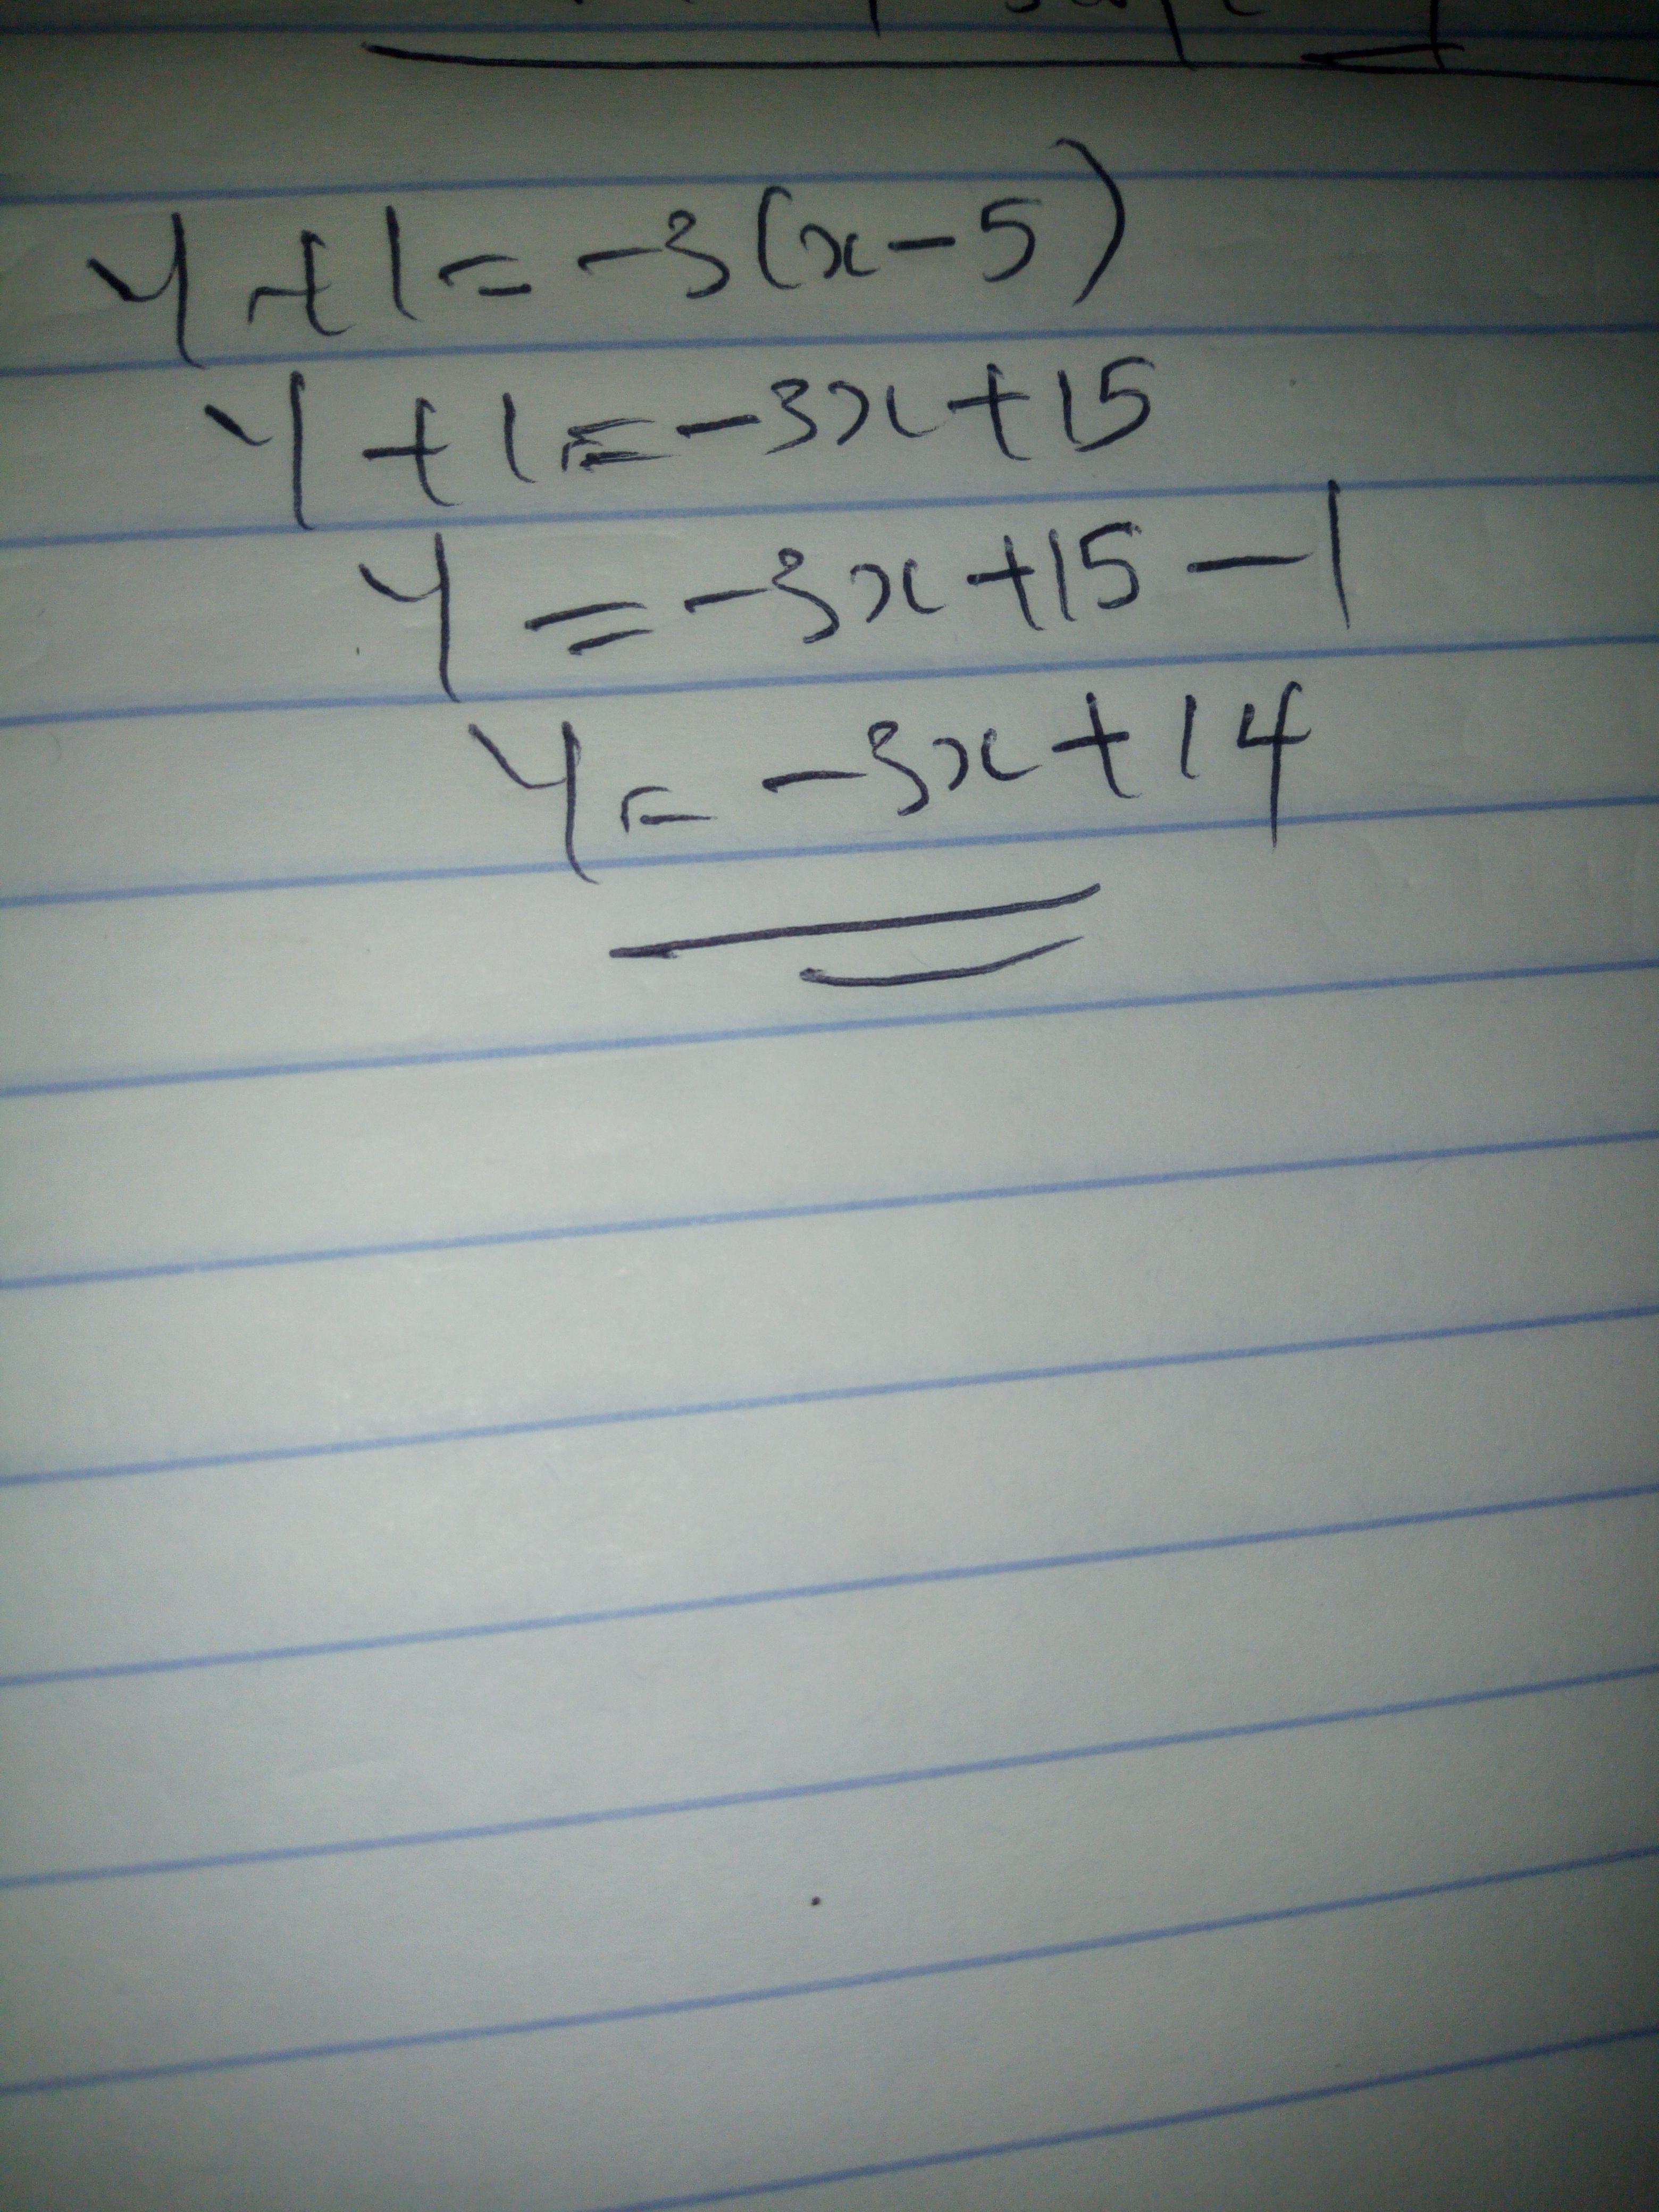 y+1=-3(x-5)
y+1=-3x+15
y=-3x+15-1
y=-3x+14